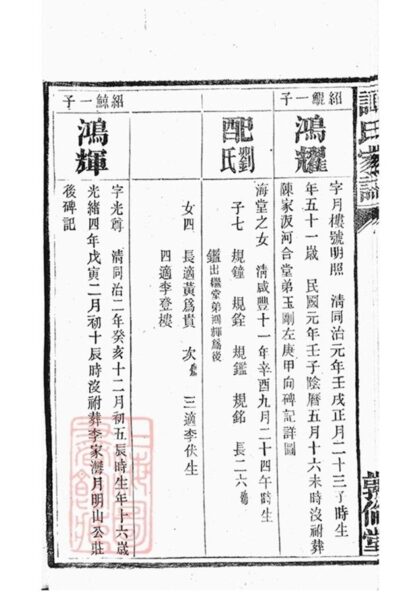 氏家譜
紹一子
鴻耀
字月樓號明照 清同治元年壬戌正月二十三子時生
年五十一歲 民國元年壬子陰曆五月十六未時沒祔葬
陳家河合堂弟玉剛左庚甲向碑記詳圖
配劉氏
海堂之女 清咸豐十一年辛酉九月二十四午時生
子七 規鐘 規銓 規鑑 規銘 長二六殤
鑑出繼堂弟鴻輝爲後
女四 長適黃爲貴 次殤 三適李伕生
四適李登樓
紹鯨一子
鴻輝
字光尊 清同治二年癸亥十二月初五辰時生年十六歲
光緒四年戊寅二月初十辰時沒祔葬李家灣月明山公莊
後碑記
堂